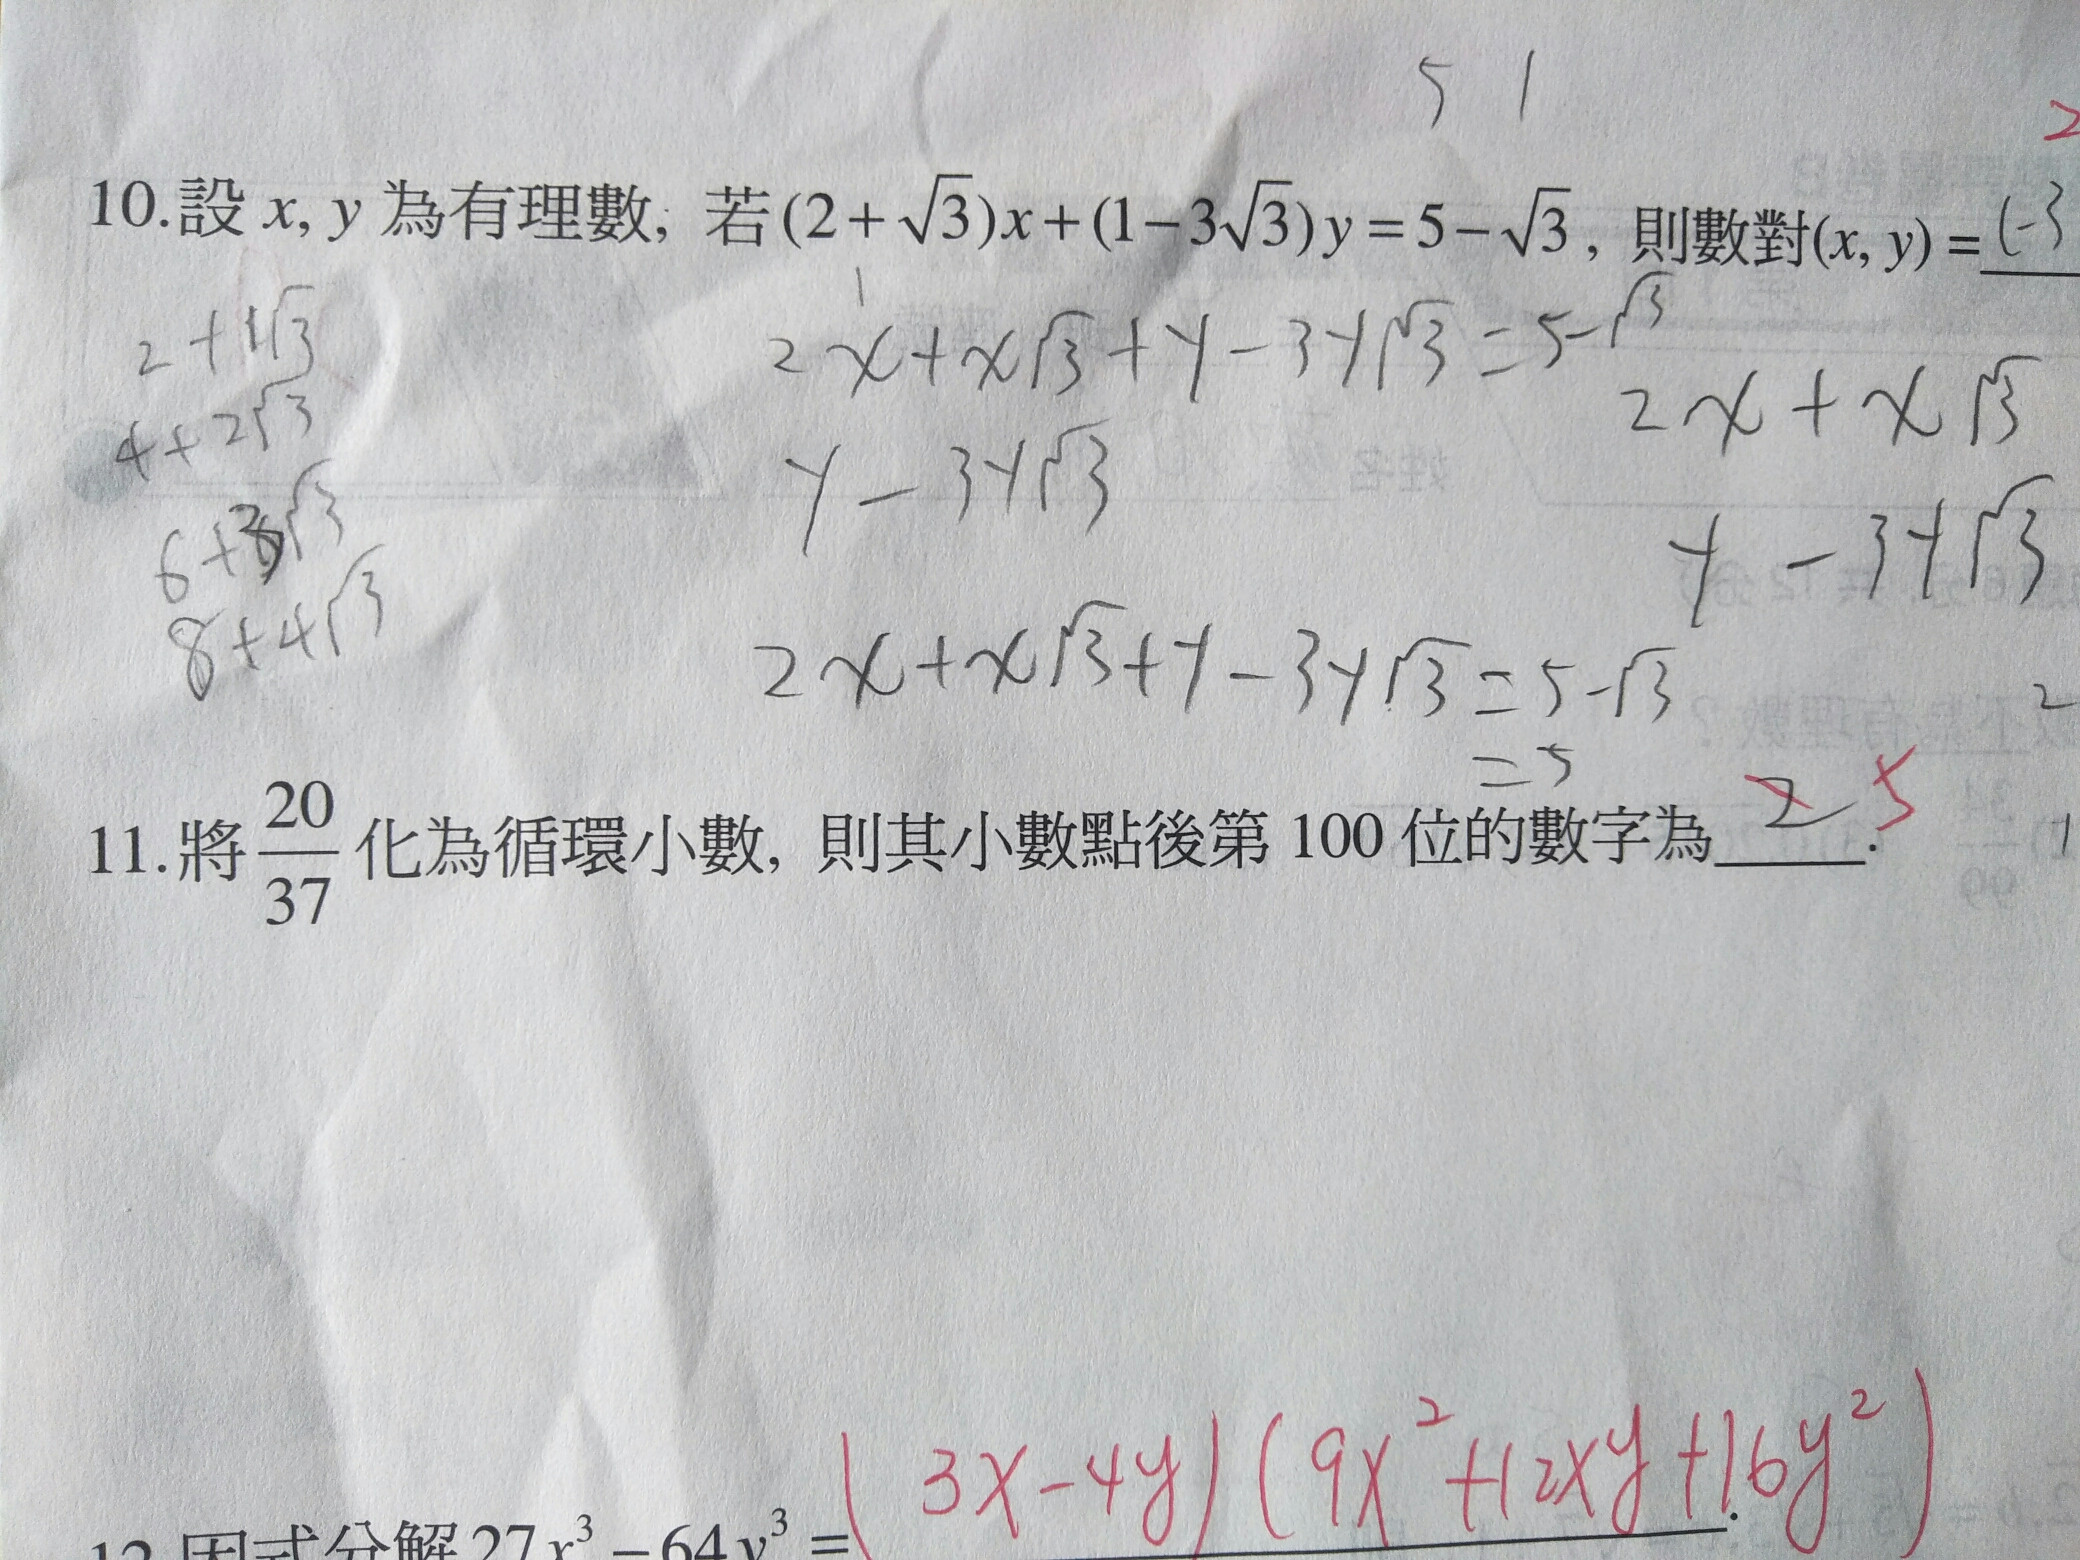 5 1
2
10.設 x, y 為有理數, 若(2+√3)x+(1−3√3)y=5−√3, 則數對(x, y)=(-3
2+1√3
2x+x√3+y-3y√3=5-√3
2x+x√3
4+2√3
y-3y√3
y-3y√3
6+3√3
8+4√3
2x+x√3+y-3y√3=5-√3
2
=5
11.將 20/37 化為循環小數, 則其小數點後第 100 位的數字為 2 5.
1
12.因式分解27x³−64y³=(3x-4y)(9x²+12xy+16y²).